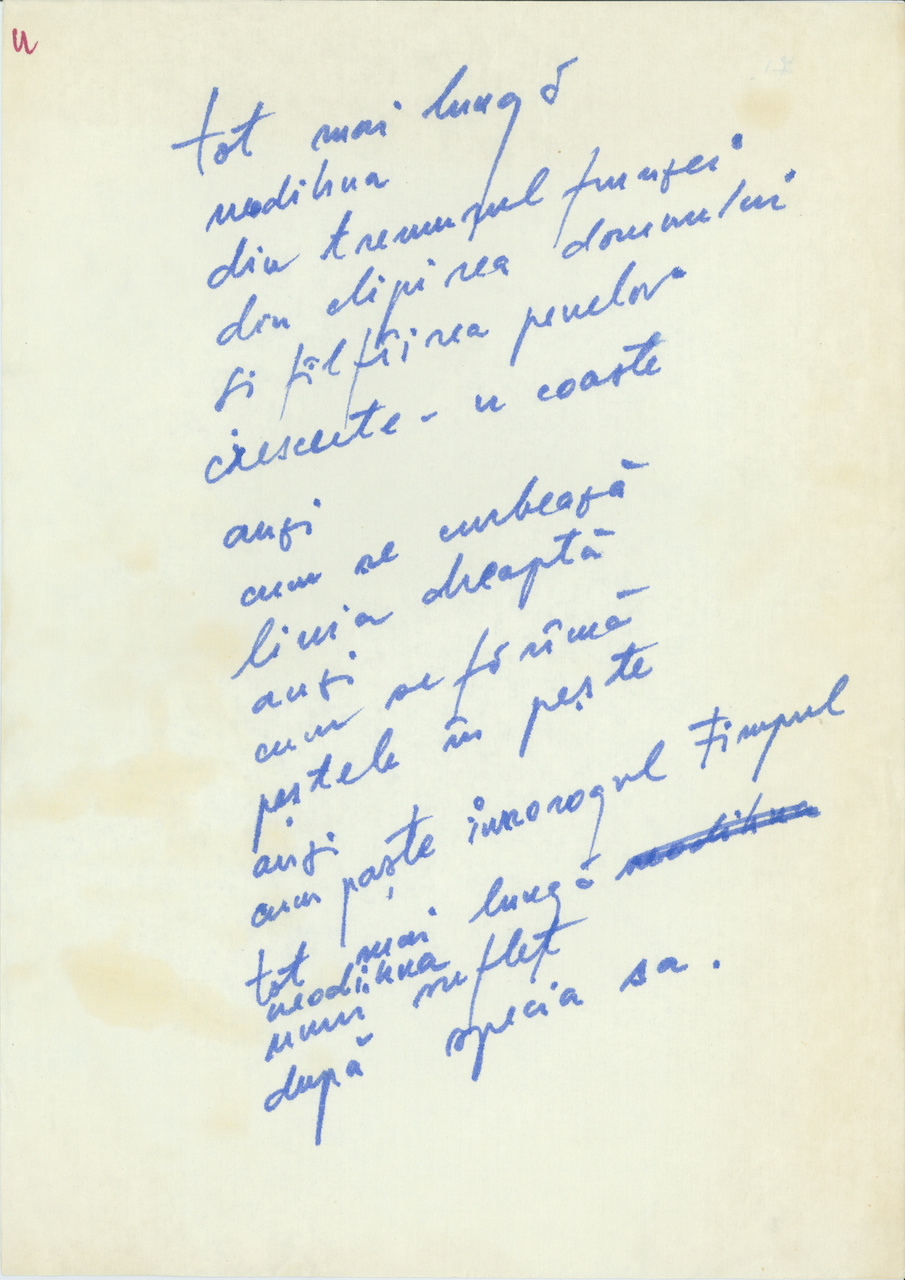 u
tot mai lungă
neodihna
din tremurul frunzei
din clipirea domnului
și fîlfîirea penelor
crescute-n coaste
auzi
cum se curbează
linia dreaptă
auzi
cum se fărîmă
peștele în pește
auzi
cum paște inorogul Timpul
tot mai lungă neodihna
neodihna
unui suflet
după specia sa.